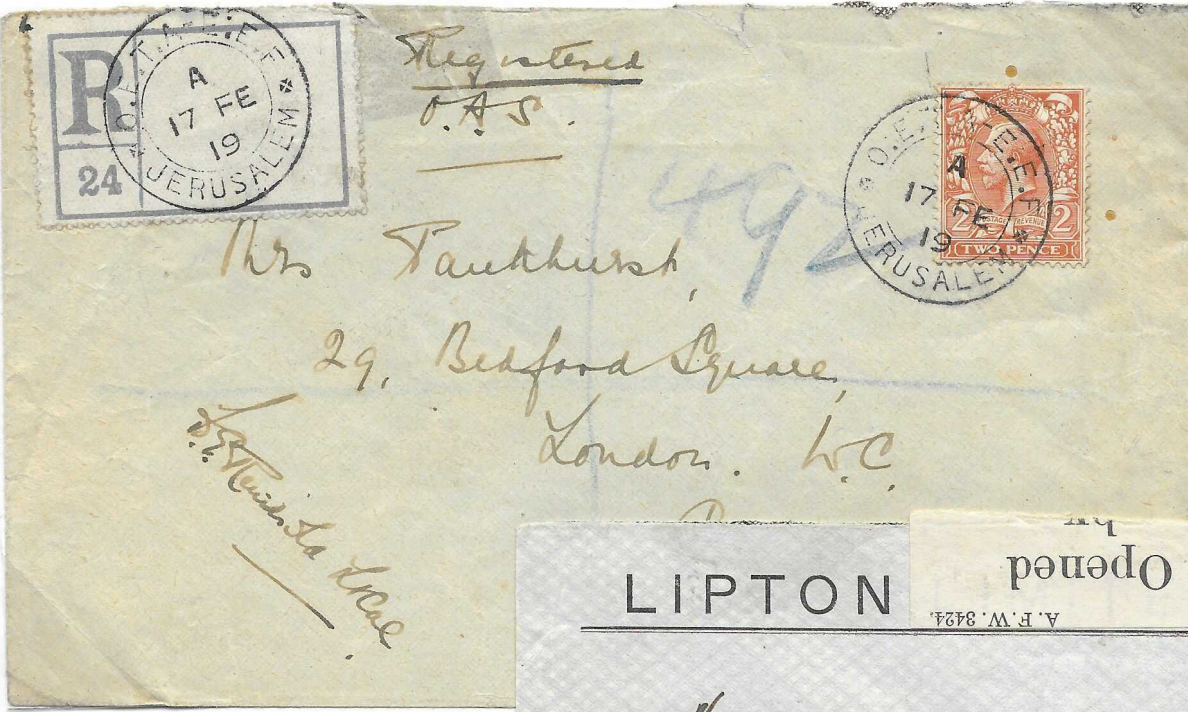 R
24
O.E.T.A-E.E.F
A
17 FE
19
JERUSALEM
Registered
O.A.S.
492
O.E.T.A-E.E.F
A
17 FE
19
JERUSALEM
POSTAGE REVENUE
2 2
TWO PENCE
Mrs Pankhurst,
29, Bedford Square,
London. W.C.
LIPTON
Opened
by
A.F.W. 3424.